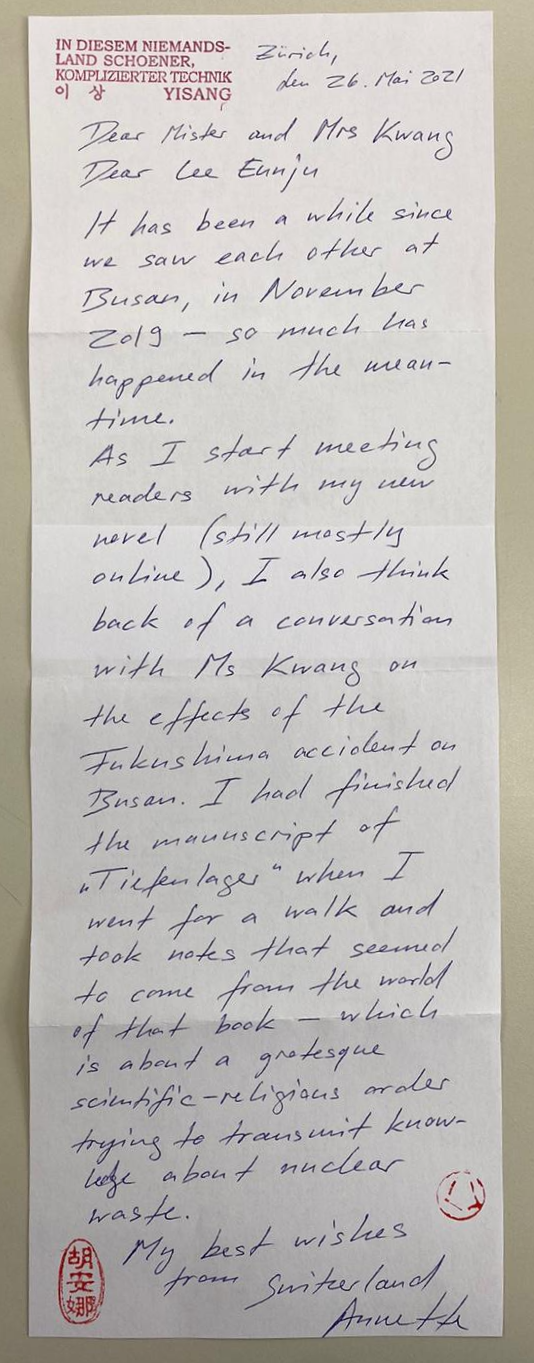 IN DIESEM NIEMANDS-
LAND SCHOENER,
KOMPLIZIERTER TECHNIK
이 상 YISANG
Zürich,
den 26. Mai 2021
Dear Mister and Mrs Kwang
Dear Lee Eunju
It has been a while since
we saw each other at
Busan, in November
2019 – so much has
happened in the mean-
time.
As I start meeting
readers with my new
novel (still mostly
online), I also think
back of a conversation
with Ms Kwang on
the effects of the
Fukushima accident on
Busan. I had finished
the manuscript of
„Tiefenlager" when I
went for a walk and
took notes that seemed
to come from the world
of that book – which
is about a grotesque
scientific-religious order
trying to transmit know-
ledge about nuclear
waste.
My best wishes
from Switzerland
Annette
胡安娜